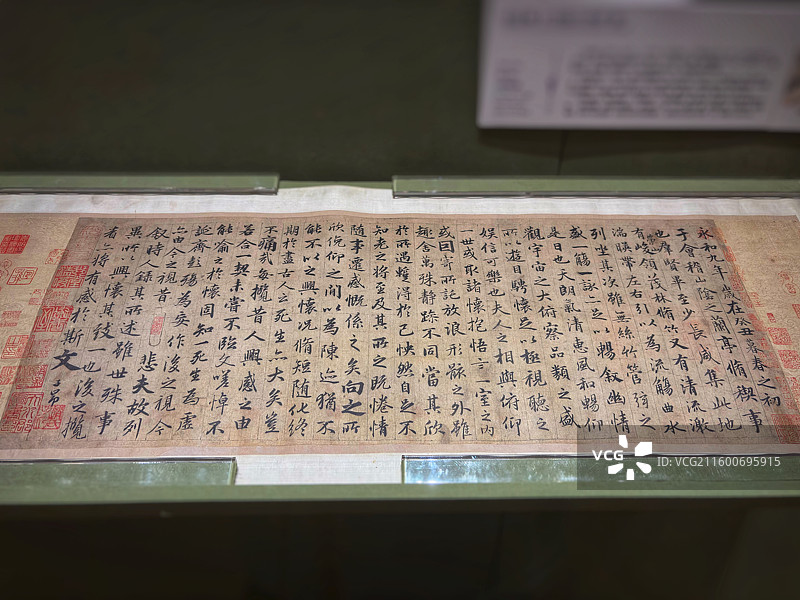 永和九年歲在癸丑暮春之初
于會稽山陰之蘭亭脩禊事
也羣賢畢至少長咸集此地
有峻領茂林脩竹又有清流激
湍暎帶左右引以為流觴曲水
列坐其次雖無絲竹管弦之
盛一觴一詠亦足以暢叙幽情
是日也天朗氣清惠風和暢仰
觀宇宙之大俯察品類之盛
所以遊目騁懷足以極視聽之
娛信可樂也夫人之相與俯仰
一世或取諸懷抱悟言一室之內
或因寄所託放浪形骸之外雖
趣舍萬殊静躁不同當其欣
於所遇蹔得於己怏然自足不
知老之將至及其所之既惓情
隨事遷感慨係之矣向之所
欣俛仰之間以為陳迹猶不
能不以之興懷況脩短隨化終
期於盡古人云死生亦大矣豈
不痛哉每攬昔人興感之由
若合一契未嘗不臨文嗟悼不
能喻之於懷固知一死生為虛
誕齊彭殤為妄作後之視今
亦由今之視昔 悲夫故列
叙時人錄其所述雖世殊事
異所以興懷其致一也後之攬
者亦將有感於斯文
VCG ID:VCG211600695915